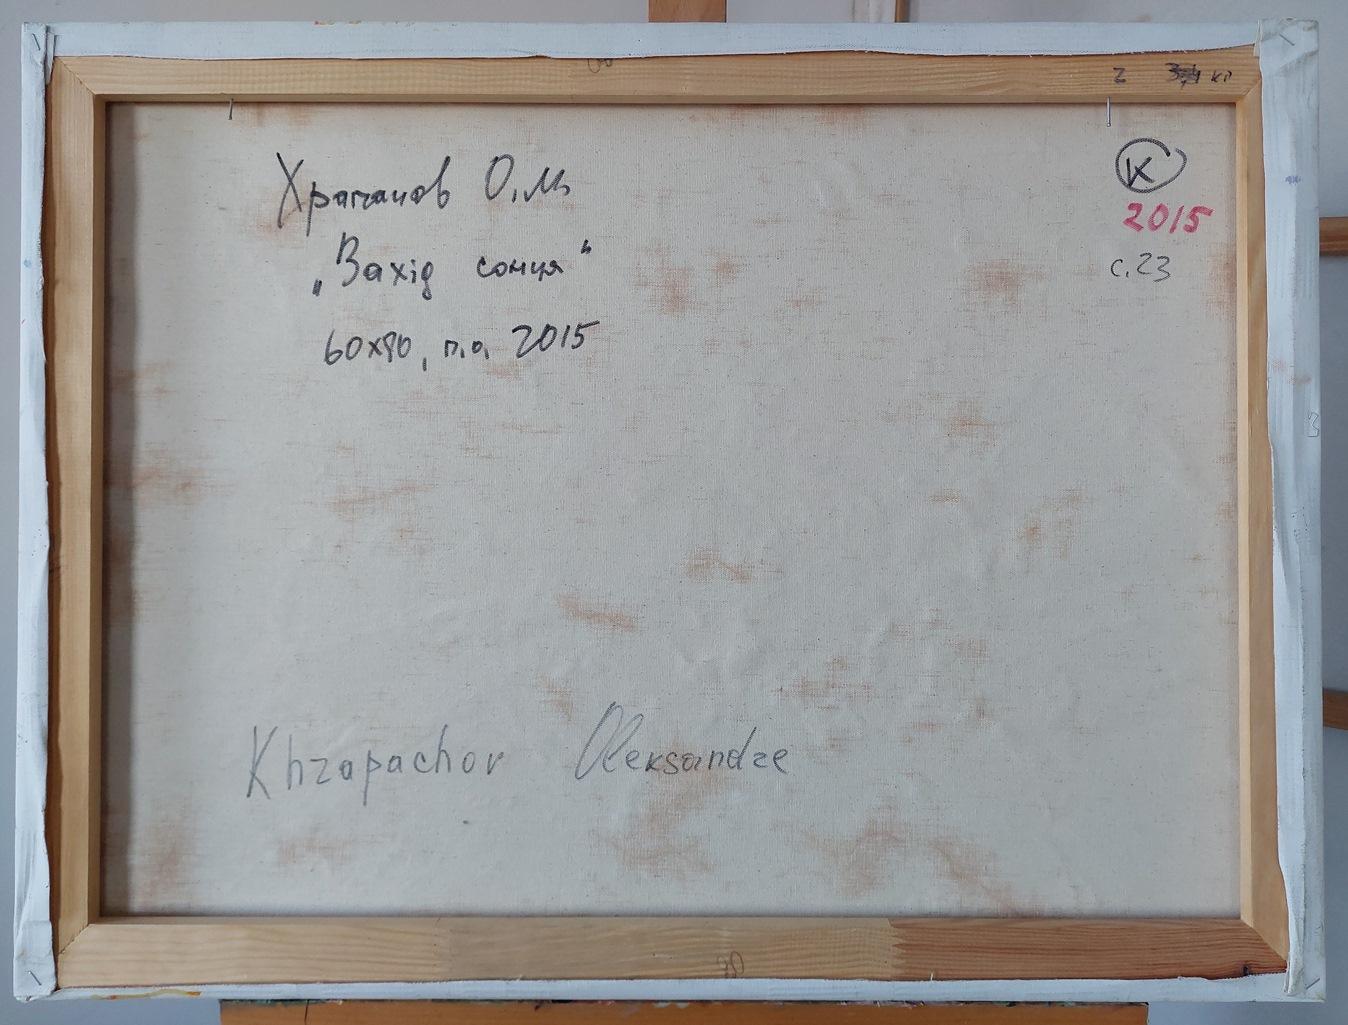 Храпачов О.М.
„Захід сонця“
60х80, п.о, 2015
К
2015
с.23
Khrapachov Oleksandre
80